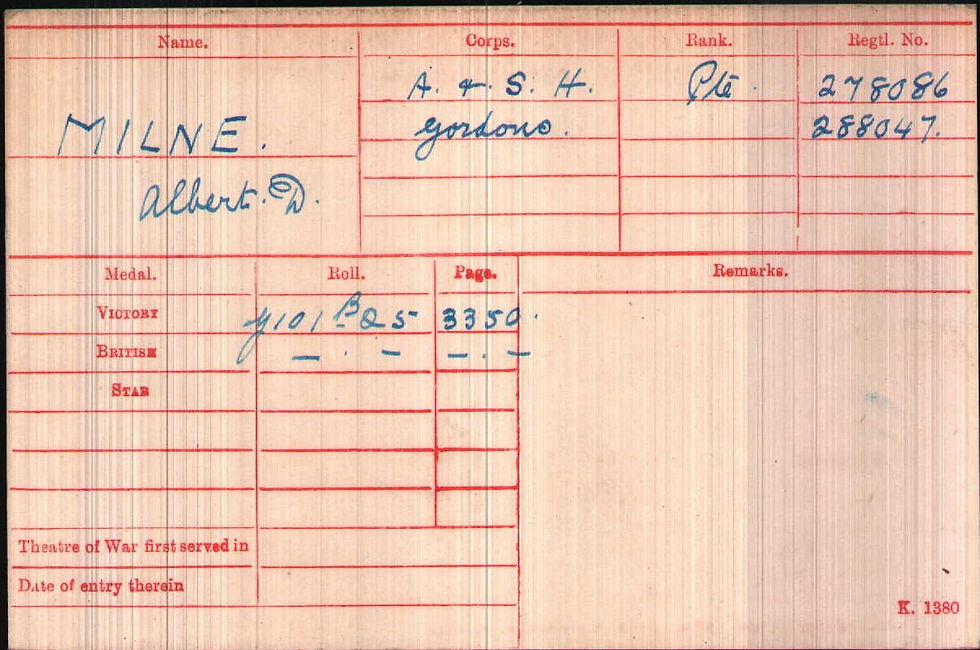 Name. Corps. Rank. Regtl. No.
A. & S. H. Pte. 278086
MILNE. Gordons. 288047.
Albert. D.
Medal. Roll. Page. Remarks.
VICTORY 3350.
BRITISH — . — — . —
STAR
Theatre of War first served in
Date of entry therein
K. 1380